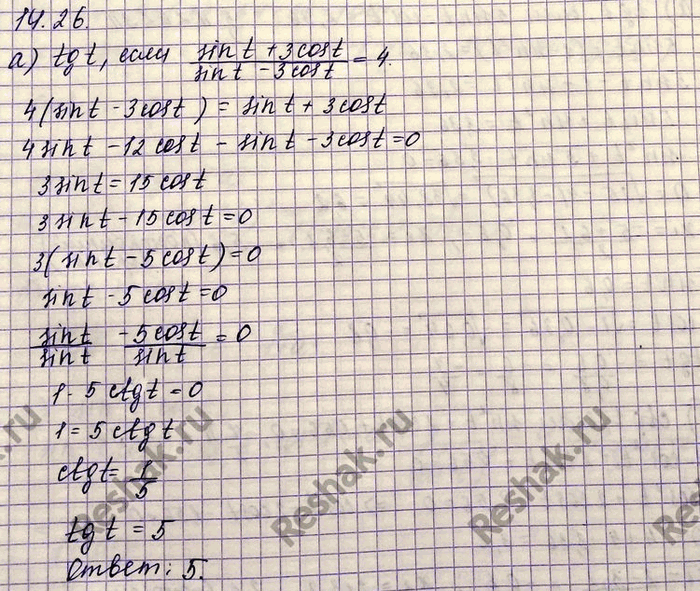 14.26.
а) tg t, если (sin t + 3cos t)/(sin t - 3cos t) = 4.
4(sin t - 3cos t) = sin t + 3cos t
4sin t - 12cos t - sin t - 3cos t = 0
3sin t = 15cos t
3sin t - 15cos t = 0
3(sin t - 5cos t) = 0
sin t - 5cos t = 0
sin t/sin t - 5cos t/sin t = 0
1 - 5ctg t = 0
1 = 5ctg t
ctg t = 1/5
tg t = 5
Ответ: 5.
Reshak.ru
Reshak.ru
Reshak.ru